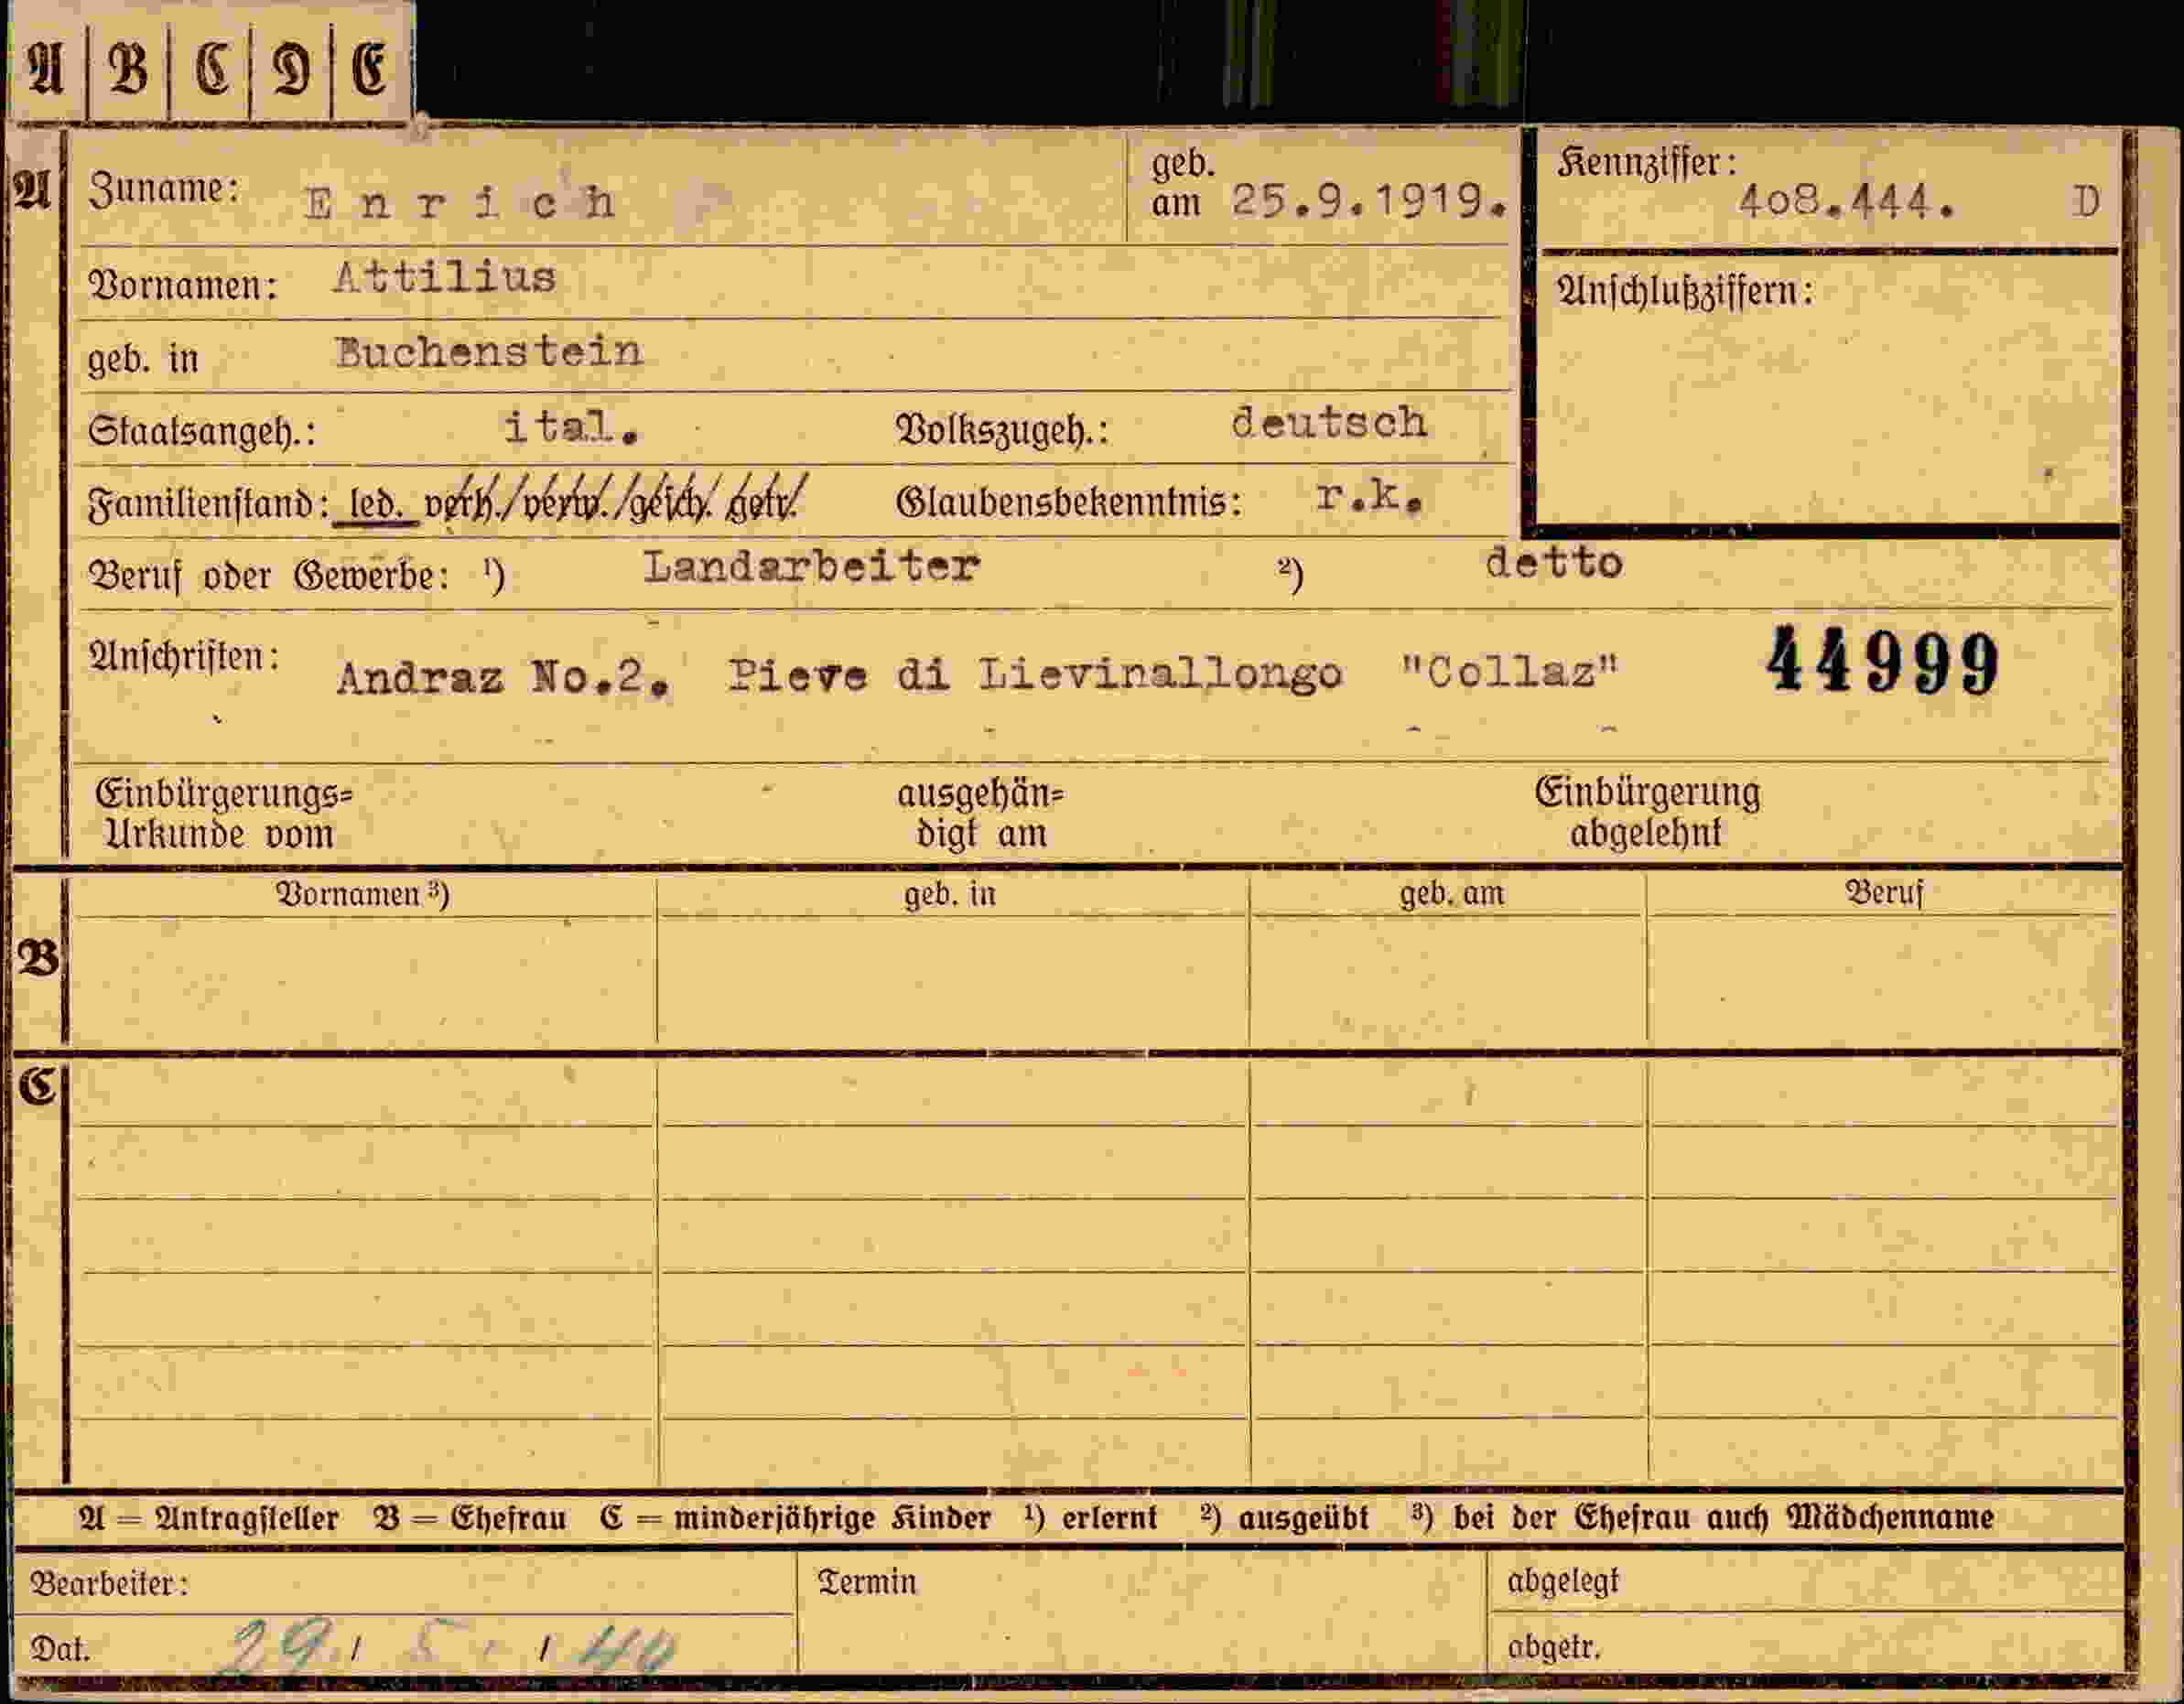 A | B | C | D | E
A Zuname: Enrich geb. am 25.9.1919. Kennziffer: 408.444. D
Vornamen: Attilius Anschlußziffern:
geb. in Buchenstein
Staatsangeh.: ital. Volkszugeh.: deutsch
Familienstand: led. verh./verw./gesch. getr. Glaubensbekenntnis: r.k.
Beruf oder Gewerbe: ¹) Landarbeiter ²) detto
Anschriften: Andraz No.2. Pieve di Lievinallongo "Collaz" 44999
Einbürgerungs= ausgehän= Einbürgerung
Urkunde vom digt am abgelehnt
Vornamen ³) geb. in geb. am Beruf
B
C
A = Antragsteller B = Ehefrau C = minderjährige Kinder ¹) erlernt ²) ausgeübt ³) bei der Ehefrau auch Mädchenname
Bearbeiter: Termin abgelegt
Dat. 29 / 5 / 40 abgetr.